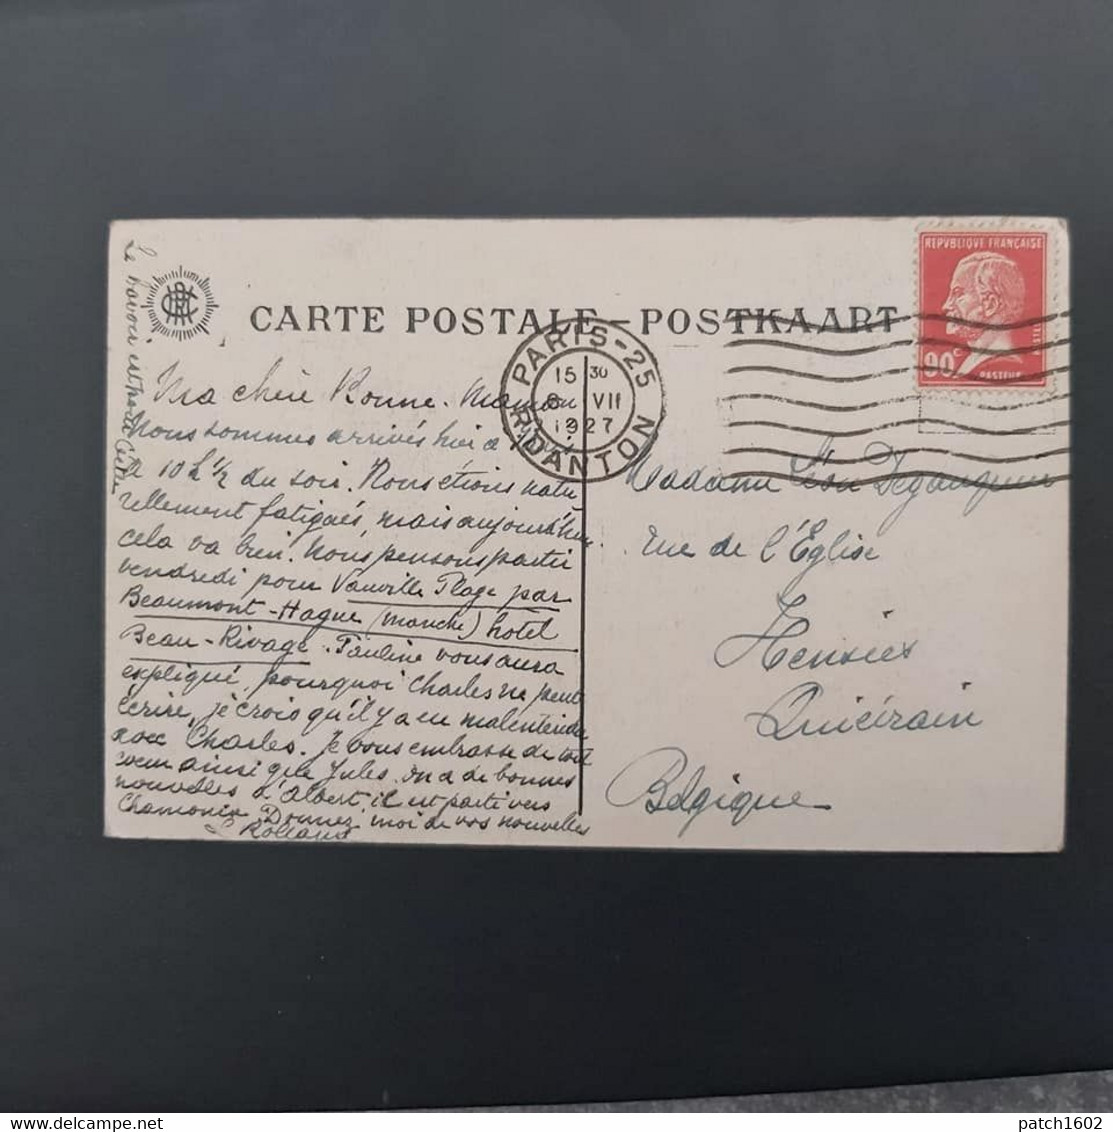 CARTE POSTALE – POSTKAART
REPVBLIQUE FRANÇAISE
POSTES
90c
PASTEUR
PARIS-25
15 30
8 VII
1927
R. DANTON
Ma chère Bonne-Maman
Nous sommes arrivés hier à
à 10 h ½ du soir. Nous étions natu
rellement fatigués, mais aujourd'hui
cela va bien. Nous pensons partir
vendredi pour Vauville Plage par
Beaumont-Hague (manche) hôtel
Beau-Rivage. Pauline vous aura
expliqué, pourquoi Charles ne peut
écrire, je crois qu'il y a eu malentendu
avec Charles. Je vous embrasse de tout
coeur ainsi que Jules. On a de bonnes
nouvelles d'Albert, il est parti vers
Chamonix. Donnez moi de vos nouvelles
Rolland
Le
est
Madame Léon
rue de l'Église
Hensies
Quiévrain
Belgique
patch1602